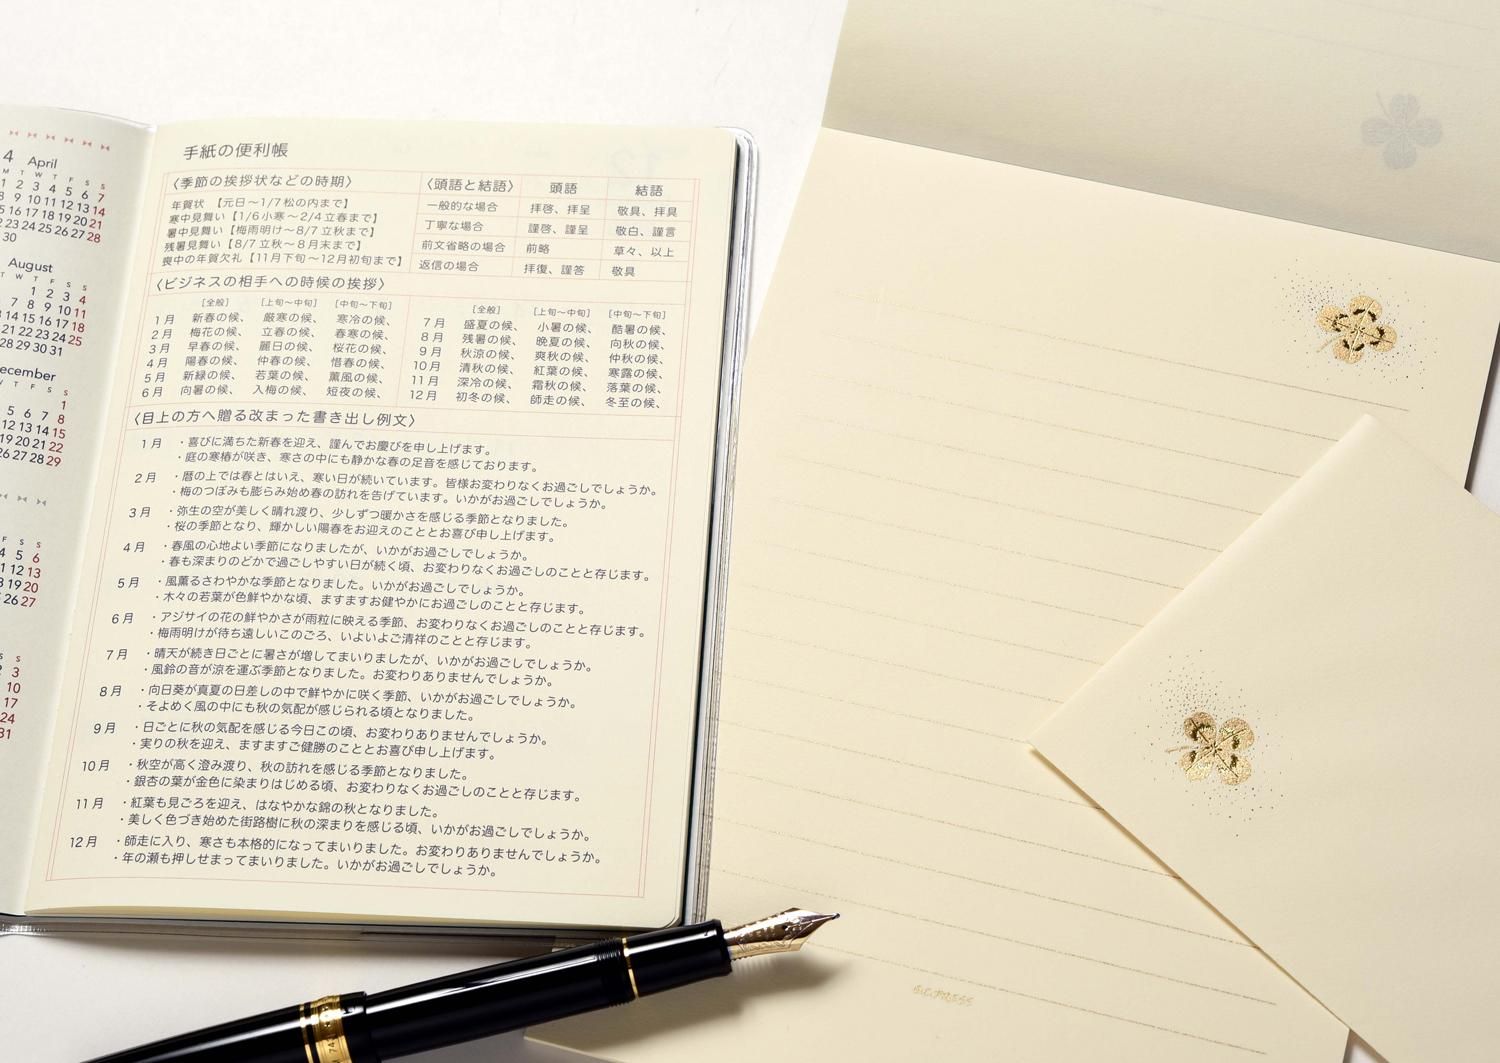 4 April
M T W T F S S
1 2 3 4 5 6 7
8 9 10 11 12 13 14
15 16 17 18 19 20 21
22 23 24 25 26 27 28
30
August
T W T F S S
1 2 3 4
7 8 9 10 11
13 14 15 16 17 18
21 22 23 24 25
28 29 30 31
ecember
T F S S
1
5 6 7 8
12 13 14 15
19 20 21 22
26 27 28 29
F S S
4 5 6
11 12 13
18 19 20
26 27
S S
3
10
17
24
31
手紙の便利帳
〈季節の挨拶状などの時期〉
年賀状 【元日～1/7 松の内まで】
寒中見舞い【1/6 小寒～2/4 立春まで】
暑中見舞い【梅雨明け～8/7 立秋まで】
残暑見舞い【8/7 立秋～8月末まで】
喪中の年賀欠礼【11月下旬～12月初旬まで】
〈頭語と結語〉 頭語 結語
一般的な場合 拝啓、拝呈 敬具、拝具
丁寧な場合 謹啓、謹呈 敬白、謹言
前文省略の場合 前略 草々、以上
返信の場合 拝復、謹答 敬具
〈ビジネスの相手への時候の挨拶〉
[全般] [上旬～中旬] [中旬～下旬]
1月 新春の候、 厳寒の候、 寒冷の候、
2月 梅花の候、 立春の候、 春寒の候、
3月 早春の候、 麗日の候、 桜花の候、
4月 陽春の候、 仲春の候、 惜春の候、
5月 新緑の候、 若葉の候、 薫風の候、
6月 向暑の候、 入梅の候、 短夜の候、
[全般] [上旬～中旬] [中旬～下旬]
7月 盛夏の候、 小暑の候、 酷暑の候、
8月 残暑の候、 晩夏の候、 向秋の候、
9月 秋涼の候、 爽秋の候、 仲秋の候、
10月 清秋の候、 紅葉の候、 寒露の候、
11月 深冷の候、 霜秋の候、 落葉の候、
12月 初冬の候、 師走の候、 冬至の候、
〈目上の方へ贈る改まった書き出し例文〉
1月 ・喜びに満ちた新春を迎え、謹んでお慶びを申し上げます。
・庭の寒椿が咲き、寒さの中にも静かな春の足音を感じております。
2月 ・暦の上では春とはいえ、寒い日が続いています。皆様お変わりなくお過ごしでしょうか。
・梅のつぼみも膨らみ始め春の訪れを告げています。いかがお過ごしでしょうか。
3月 ・弥生の空が美しく晴れ渡り、少しずつ暖かさを感じる季節となりました。
・桜の季節となり、輝かしい陽春をお迎えのこととお喜び申し上げます。
4月 ・春風の心地よい季節になりましたが、いかがお過ごしでしょうか。
・春も深まりのどかで過ごしやすい日が続く頃、お変わりなくお過ごしのことと存じます。
5月 ・風薫るさわやかな季節となりました。いかがお過ごしでしょうか。
・木々の若葉が色鮮やかな頃、ますますお健やかにお過ごしのことと存じます。
6月 ・アジサイの花の鮮やかさが雨粒に映える季節、お変わりなくお過ごしのことと存じます。
・梅雨明けが待ち遠しいこのごろ、いよいよご清祥のことと存じます。
7月 ・晴天が続き日ごとに暑さが増してまいりましたが、いかがお過ごしでしょうか。
・風鈴の音が涼を運ぶ季節となりました。お変わりありませんでしょうか。
8月 ・向日葵が真夏の日差しの中で鮮やかに咲く季節、いかがお過ごしでしょうか。
・そよめく風の中にも秋の気配が感じられる頃となりました。
9月 ・日ごとに秋の気配を感じる今日この頃、お変わりありませんでしょうか。
・実りの秋を迎え、ますますご健勝のこととお喜び申し上げます。
10月 ・秋空が高く澄み渡り、秋の訪れを感じる季節となりました。
・銀杏の葉が金色に染まりはじめる頃、お変わりなくお過ごしのことと存じます。
11月 ・紅葉も見ごろを迎え、はなやかな錦の秋となりました。
・美しく色づき始めた街路樹に秋の深まりを感じる頃、いかがお過ごしでしょうか。
12月 ・師走に入り、寒さも本格的になってまいりました。お変わりありませんでしょうか。
・年の瀬も押しせまってまいりました。いかがお過ごしでしょうか。
G.C.PRESS